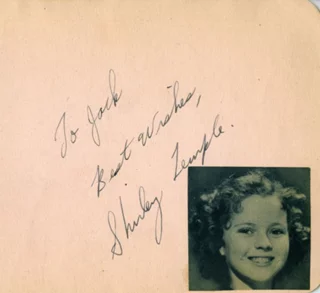 To Jack
Best Wishes,
Shirley Temple.